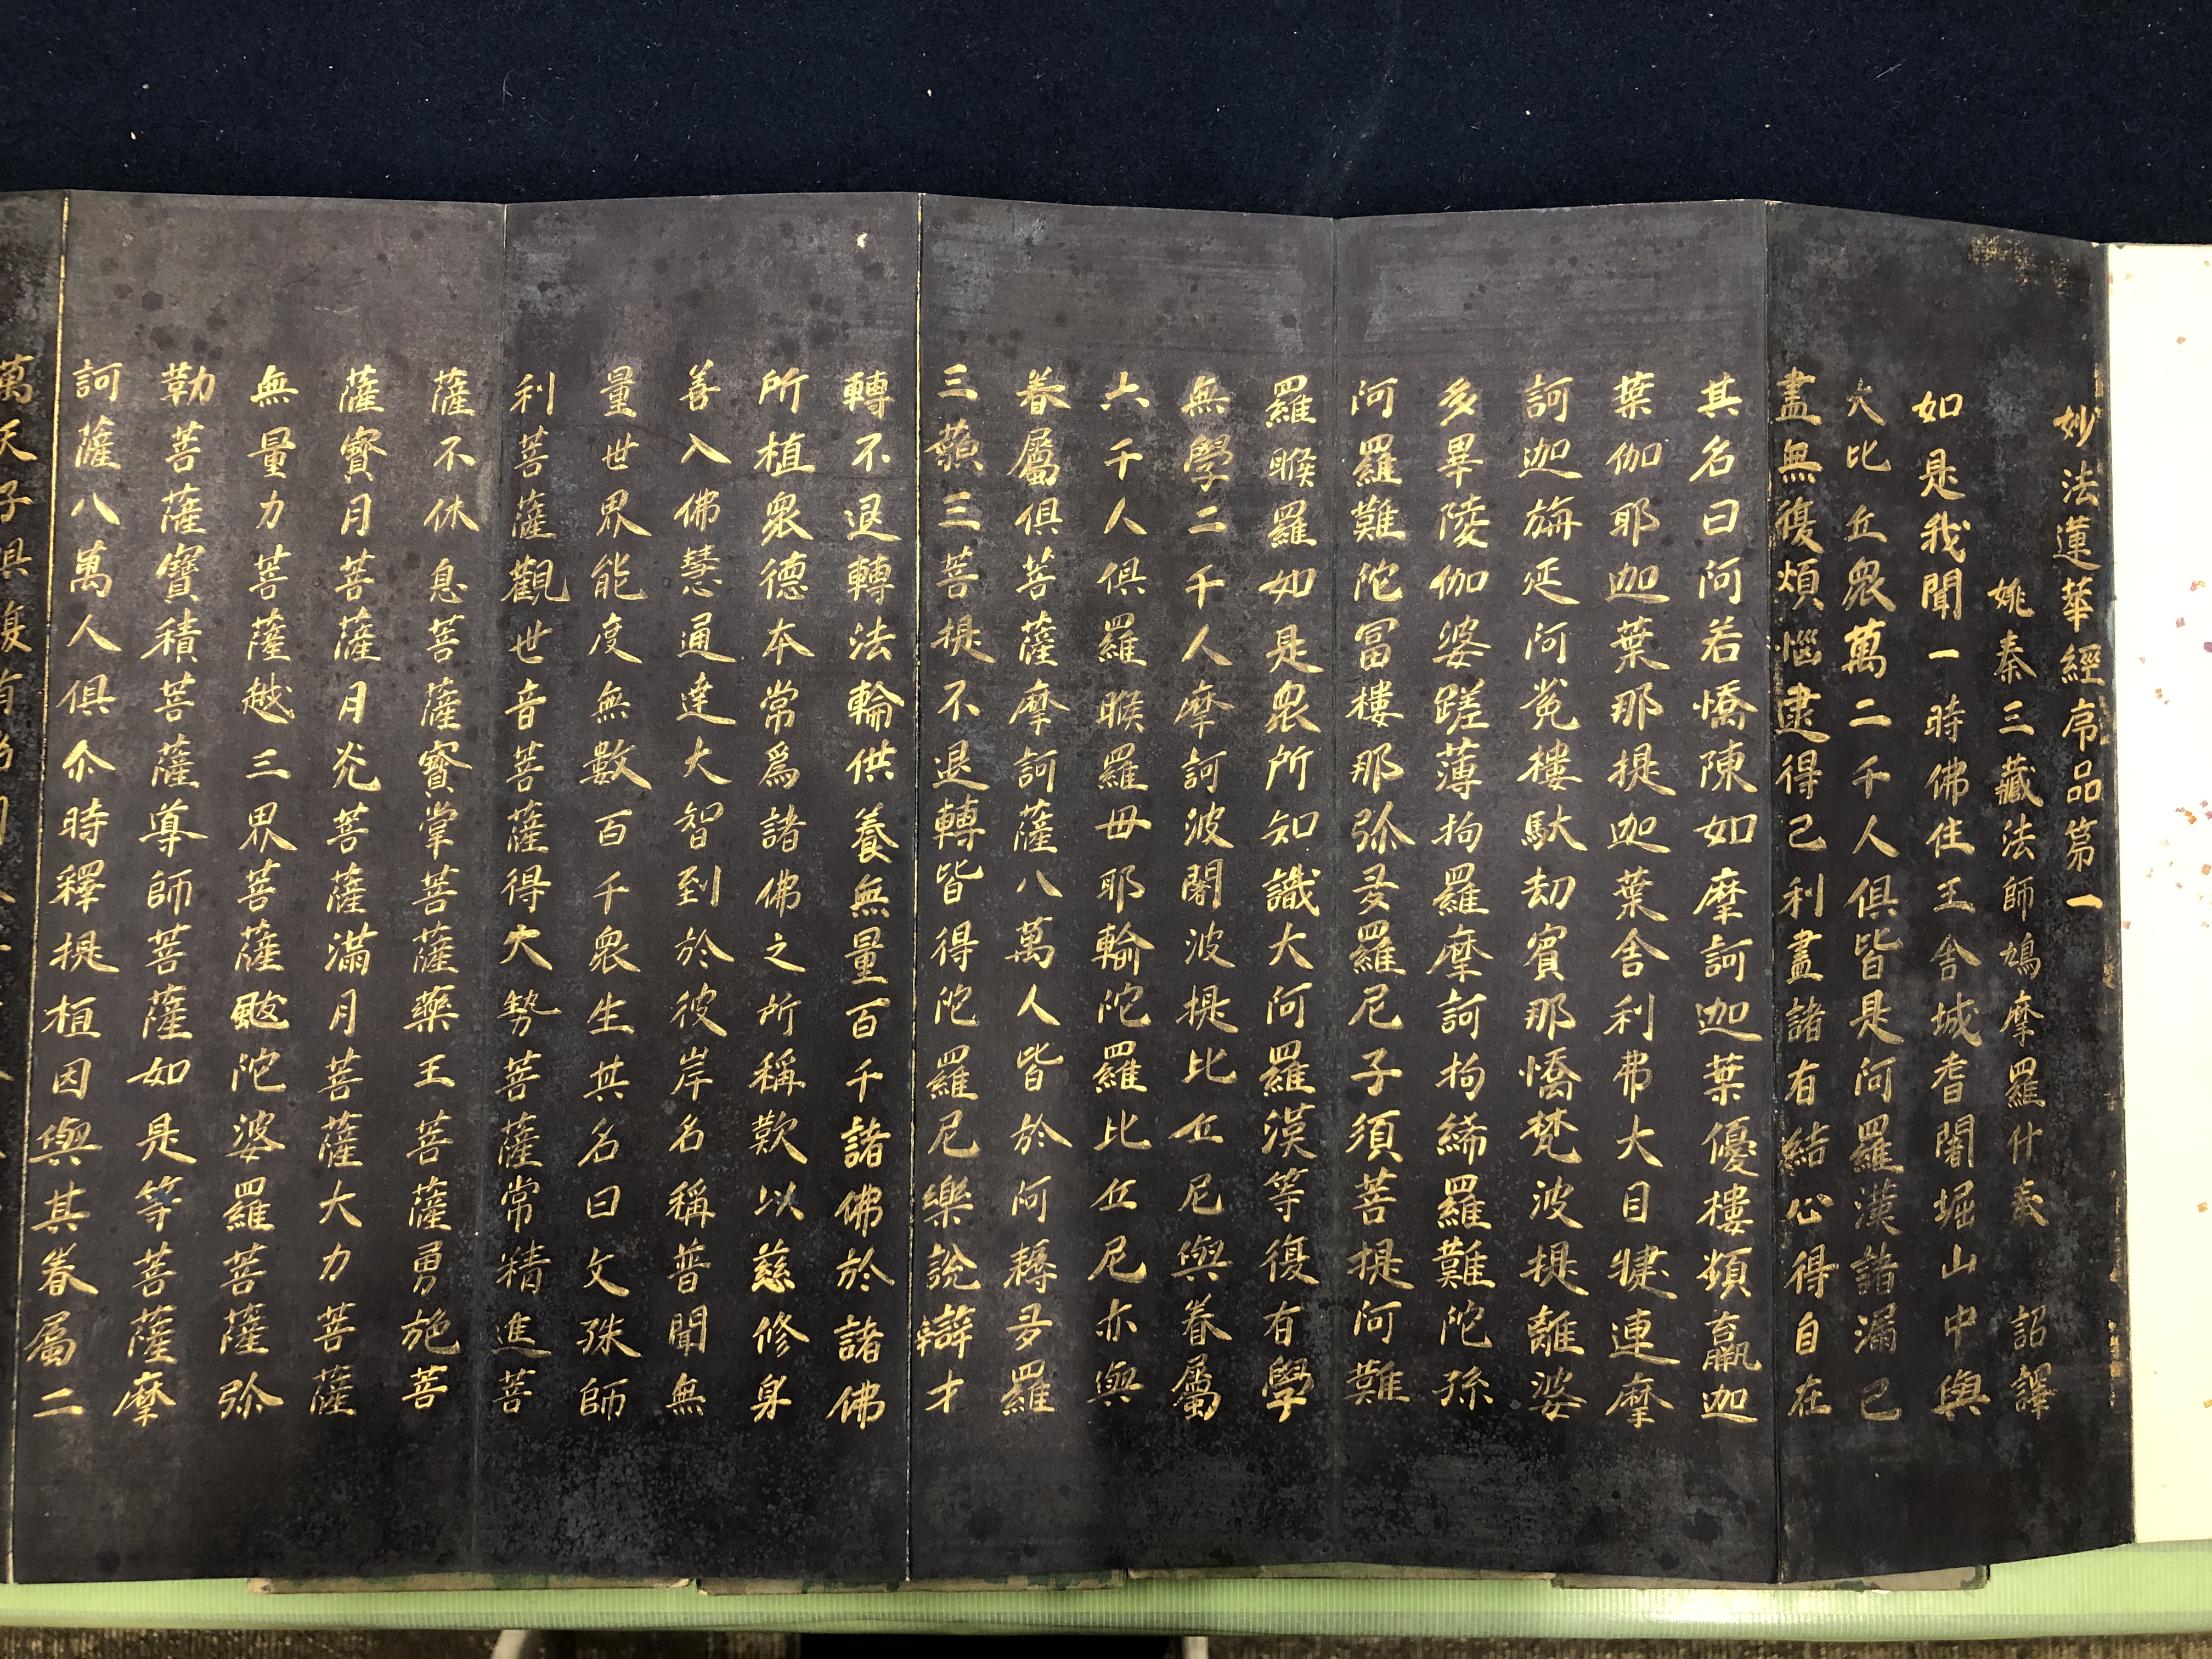 妙法蓮華經序品第一
姚秦三藏法師鳩摩羅什奉 詔譯
如是我聞一時佛住王舍城耆闍堀山中與
大比丘眾萬二千人俱皆是阿羅漢諸漏已
盡無復煩惱逮得己利盡諸有結心得自在
其名曰阿若憍陳如摩訶迦葉優樓頻蠃迦
葉伽耶迦葉那提迦葉舍利弗大目犍連摩
訶迦旃延阿㝹樓馱劫賓那憍梵波提離婆
多畢陵伽婆蹉薄拘羅摩訶拘絺羅難陀孫
阿羅難陀冨樓那弥多羅尼子須菩提阿難
羅睺羅如是眾所知識大阿羅漢等復有學
無學二千人摩訶波闍波提比丘尼與眷屬
六千人俱羅睺羅母耶輸陀羅比丘尼亦與
眷屬俱菩薩摩訶薩八萬人皆於阿耨多羅
三藐三菩提不退轉皆得陀羅尼樂說辯才
轉不退轉法輪供養無量百千諸佛於諸佛
所植眾德本常爲諸佛之所稱歎以慈修身
善入佛慧通達大智到於彼岸名稱普聞無
量世界能度無數百千眾生其名曰文殊師
利菩薩觀世音菩薩得大勢菩薩常精進菩
薩不休息菩薩寶掌菩薩藥王菩薩勇施菩
薩寶月菩薩月光菩薩滿月菩薩大力菩薩
無量力菩薩越三界菩薩颰陀婆羅菩薩弥
勒菩薩寶積菩薩導師菩薩如是等菩薩摩
訶薩八萬人俱尒時釋提桓因與其眷屬二
萬天子俱復有名月